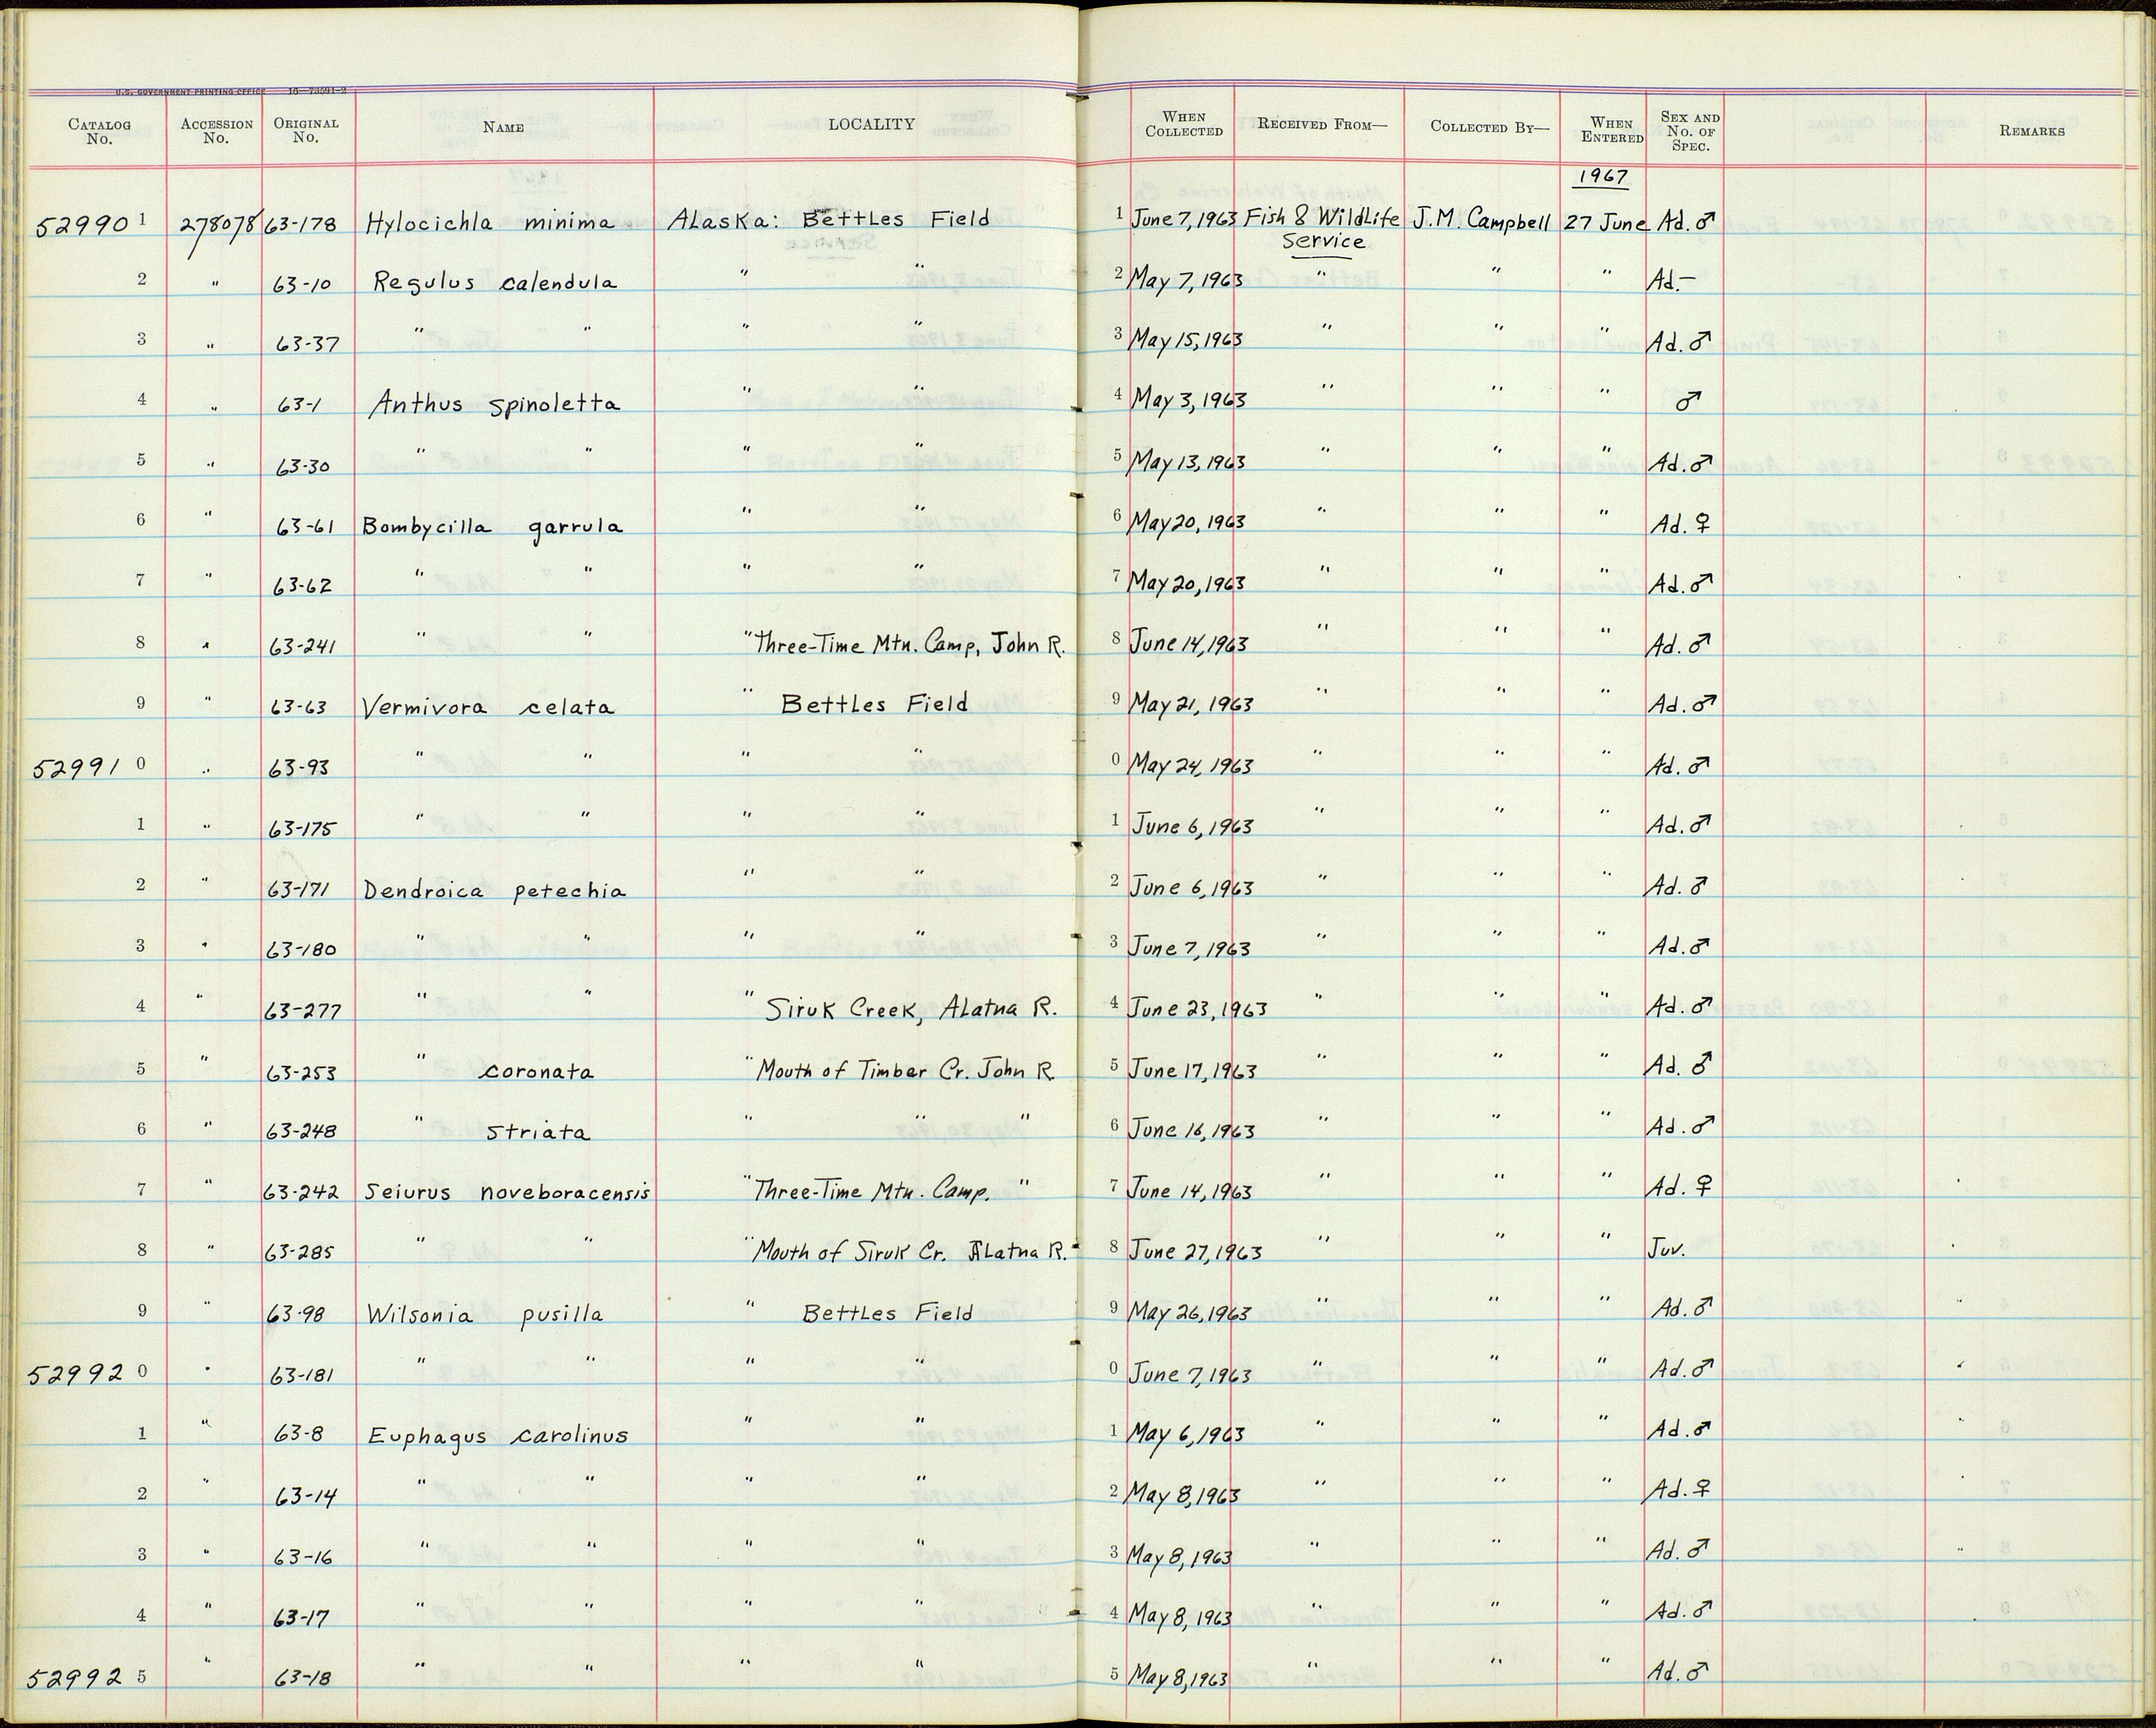 U.S. GOVERNMENT PRINTING OFFICE 16—73591-2
CATALOG No. ACCESSION No. ORIGINAL No. NAME LOCALITY WHEN COLLECTED RECEIVED FROM— COLLECTED BY— WHEN ENTERED SEX AND No. OF SPEC. REMARKS
1967
52990 1 278078 63-178 Hylocichla minima Alaska: Bettles Field 1 June 7, 1963 Fish & Wildlife Service J.M. Campbell 27 June Ad. ♂
2 " 63-10 Regulus calendula " " 2 May 7, 1963 " " " Ad.—
3 " 63-37 " " " " 3 May 15, 1963 " " " Ad. ♂
4 " 63-1 Anthus spinoletta " " 4 May 3, 1963 " " " ♂
5 " 63-30 " " " " 5 May 13, 1963 " " " Ad. ♂
6 " 63-61 Bombycilla garrula " " 6 May 20, 1963 " " " Ad. ♀
7 " 63-62 " " " " 7 May 20, 1963 " " " Ad. ♂
8 " 63-241 " " " Three-Time Mtn. Camp, John R. 8 June 14, 1963 " " " Ad. ♂
9 " 63-63 Vermivora celata " Bettles Field 9 May 21, 1963 " " " Ad. ♂
52991 0 " 63-93 " " " " 0 May 24, 1963 " " " Ad. ♂
1 " 63-175 " " " " 1 June 6, 1963 " " " Ad. ♂
2 " 63-171 Dendroica petechia " " 2 June 6, 1963 " " " Ad. ♂
3 " 63-180 " " " " 3 June 7, 1963 " " " Ad. ♂
4 " 63-277 " " " Siruk Creek, Alatna R. 4 June 23, 1963 " " " Ad. ♂
5 " 63-253 " coronata " Mouth of Timber Cr. John R. 5 June 17, 1963 " " " Ad. ♂
6 " 63-248 " striata " " " 6 June 16, 1963 " " " Ad. ♂
7 " 63-242 Seiurus noveboracensis " Three-Time Mtn. Camp. " 7 June 14, 1963 " " " Ad. ♀
8 " 63-285 " " " Mouth of Siruk Cr. Alatna R. 8 June 27, 1963 " " " Juv.
9 " 63-98 Wilsonia pusilla " Bettles Field 9 May 26, 1963 " " " Ad. ♂
52992 0 " 63-181 " " " " 0 June 7, 1963 " " " Ad. ♂
1 " 63-8 Euphagus carolinus " " 1 May 6, 1963 " " " Ad. ♂
2 " 63-14 " " " " 2 May 8, 1963 " " " Ad. ♀
3 " 63-16 " " " " 3 May 8, 1963 " " " Ad. ♂
4 " 63-17 " " " " 4 May 8, 1963 " " " Ad. ♂
52992 5 " 63-18 " " " " 5 May 8, 1963 " " " Ad. ♂